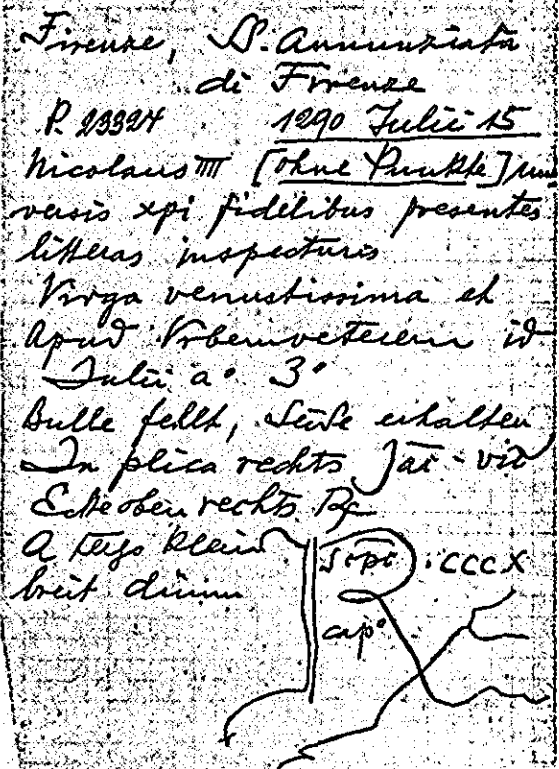 Firenze, SS. Annunziata
di Firenze
P. 23324 1290 Julii 15
Nicolaus IIII [ohne Punkte] uni
versis xpi fidelibus presentes
litteras inspecturis
Virga venustissima et
Apud Vrbemveterem id
Julii a° 3°
Bulle fehlt, Seide erhalten
In plica rechts Jac - vit
Ecke oben rechts Rc
A tergo klein
breit dünn
script CCCX
cap°